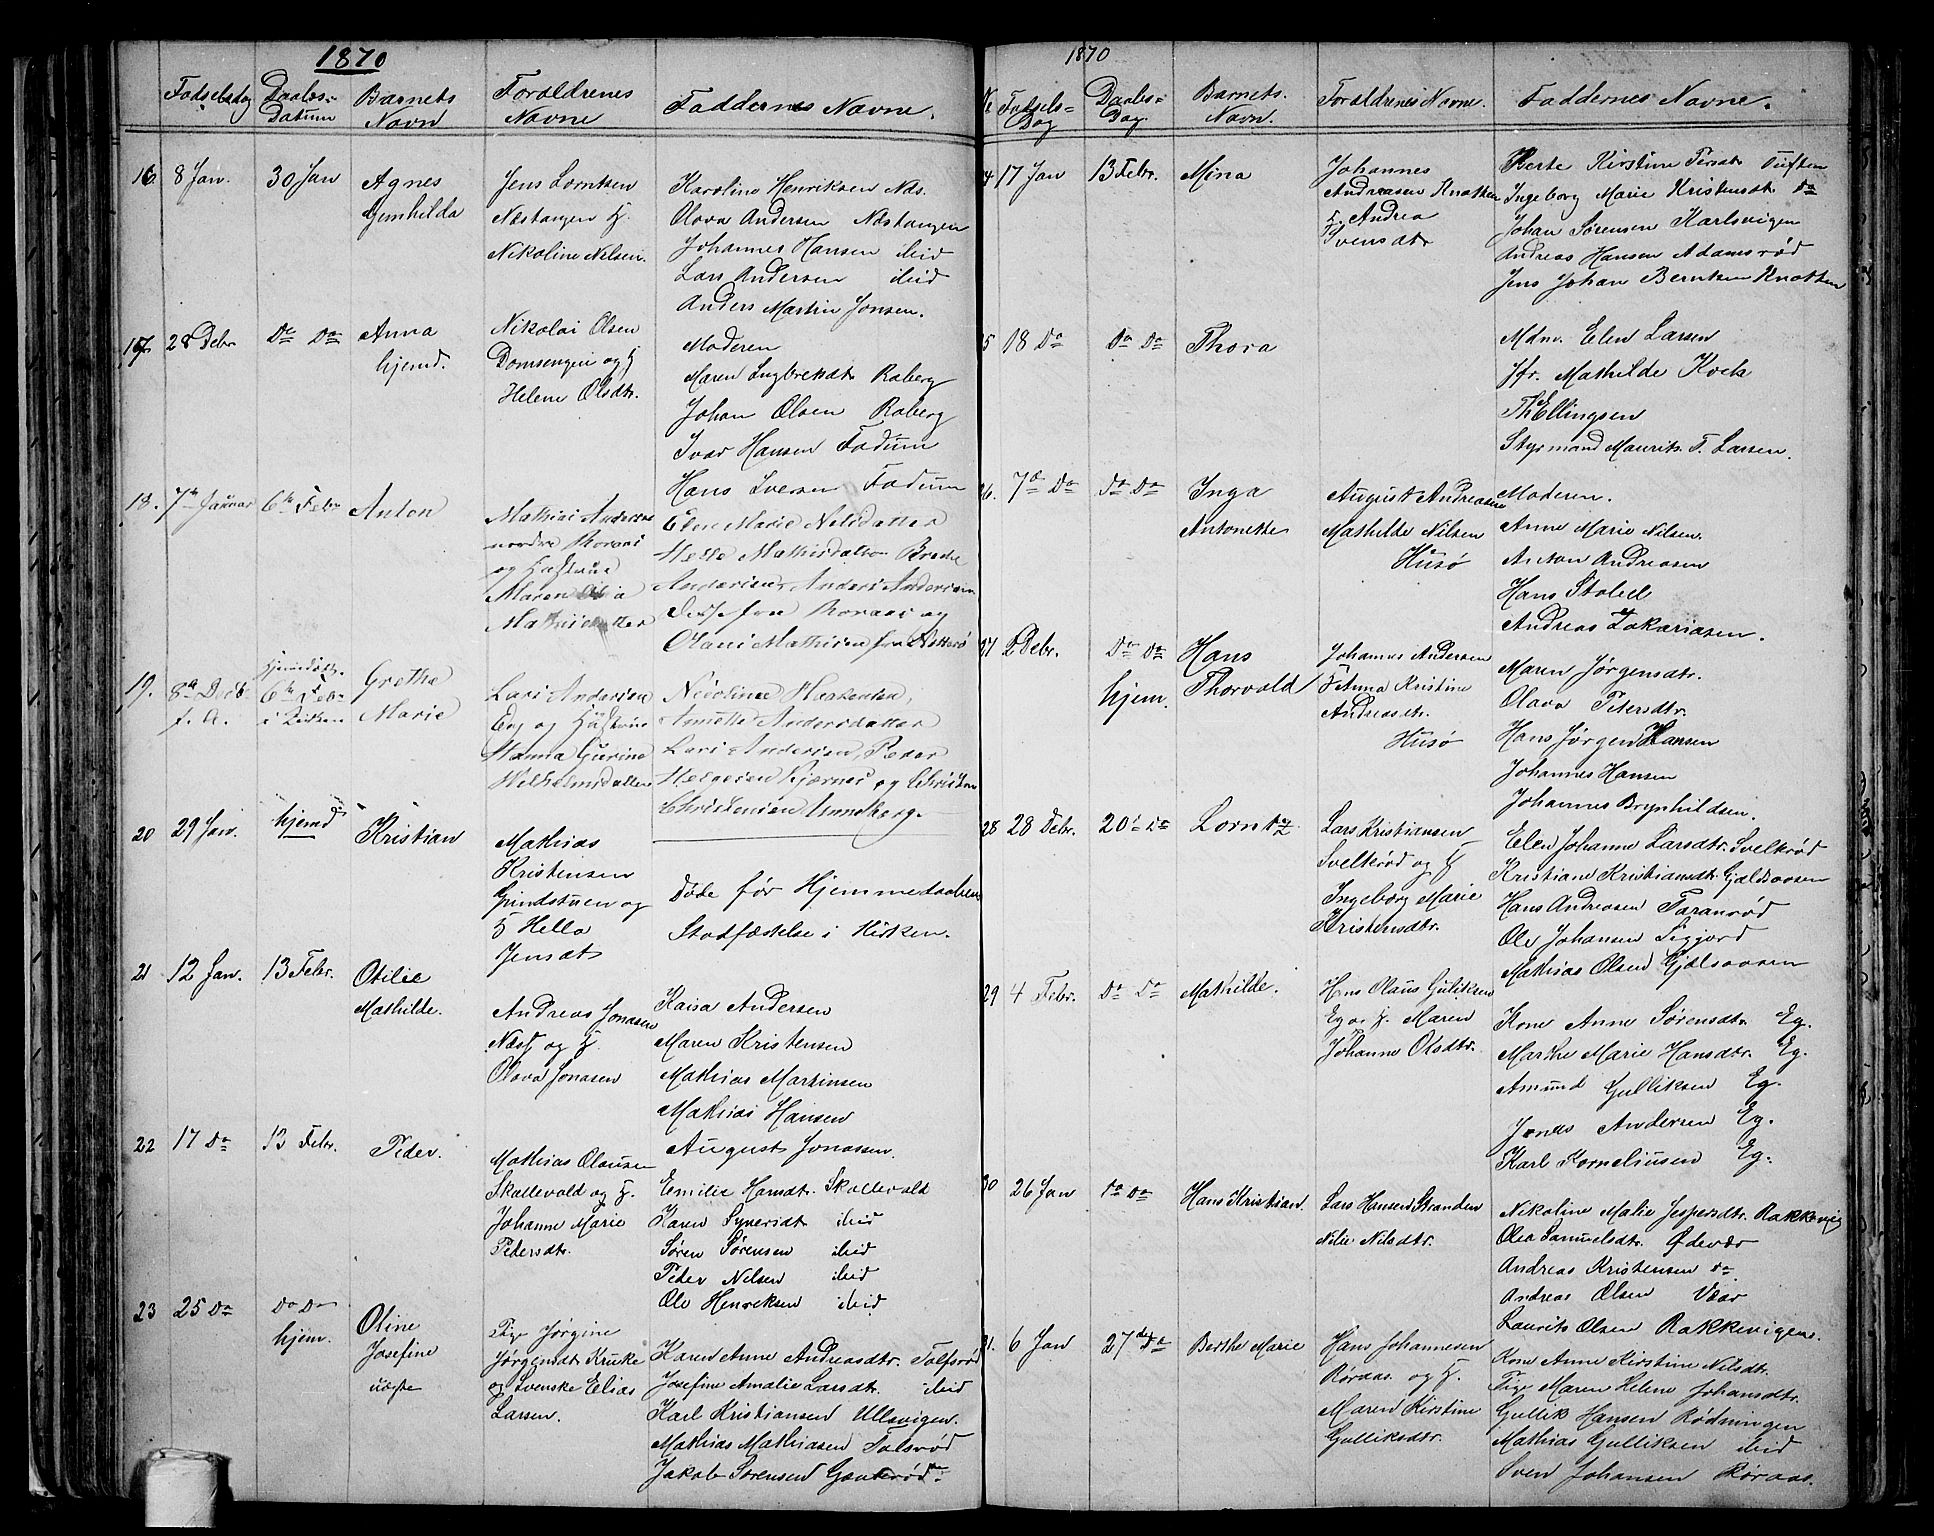 1870
Fødselsdag
Daabs-
Datum
Barnets
Navn
Forældrenes
Navne
Faddernes Navne.
16. 8 Jan. 30 Jan
Agnes
Gunhilda
Jens Lorntsen
Næstangen &
Nikoline Nilsen.
Karoline Henriksen Næs.
Olava Andersen Næstangen
Johannes Hansen ibid
Lars Andersen ibid
Anders Martin Jonsen.
17. 28 Debr Do Do
Anna
hjemd.
Nikolai Olsen
Domsengen og H
Helene Olsdtr.
Moderen
Maren Ingbrektdtr Raberg
Johan Olsen Raberg
Ivar Hansen Fadum
Hans Iversen Fadum
18. 7de Januar 6te Febr Anton
Mathias Andersen
nordre Roraas
og Hustrue
Maren
Mathisdatter
Elen Marie Nilsdatter
Mette Mathisdatter
Andersen, Anders Andersen
fra Roraas og
Olaus Mathisen fra Nøtterø
19. 8de Decb.
f. A.
hjemdøbt.
6te Febr
i Kirken
Grethe
Marie
Lars Andersen
Eeg og Hustrue
Gurine
Wilhelmsdatter
Nicoline
Annette Andersdatter
Lars Andersen, Peder
Kjærnes og Christen
Christensen Unneberg.
20 29 Jan. hjemd
Kristian
Mathias
Kristensen
Grindstuen og
H Hella
Jensdtr
Døde før Hjemmedaabens
Stadfæstelse i Kirken.
21 12 Jan. 13 Febr.
Otilie
Mathilde.
Andreas Jonasen
Næs og H.
Olava Jonasen
Kaisa Andersen
Maren Kristensen
Mathias Martinsen
Mathias Hansen
August Jonassen.
22 17 Do 13 Febr.
Peder.
Mathias Olausen
Skallevald og H.
Johanne Marie
Pedersdtr.
Emilie Hansdtr. Skallevald
Karen Synersdtr ibid
Søren Sørensen ibid
Peder Nilsen ibid
Ole Henriksen ibid
23 25 Do Do Do
hjem.
Oline
Josefine
uægte
Pige Jørgine
Jørgensdtr Kruke
og Svenske Elias
Larsen.
Karen Anne Andreasdtr. Tolfsrød
Josefine Amalie Larsdtr. ibid
Karl Kristiansen Ullevigen.
Mathias Mathiasen Tolsrød
Jakob Sørensen Gauterød
1870
Nr
Fødsels-
Dag
Daabs-
Dag.
Barnets.
Navn.
Forældrenes Navne.
Faddernes Navne.
24 17 Jan 13 Febr. Mina
Johannes
Andreasen Knatten
& Andrea
Svensdtr
Berte Kirstine Persdtr Tuften
Ingeborg Marie Kristensdtr Do
Johan Sørensen Karlsvigen
Andreas Hansen Adamsrød
Jens Johan Berntsen Knatten
25 18 Do Do Do Thora
Mdm. Elen Larsen
Jfr. Mathilde Koch
Th Ellingsen
Styrmand Maurits T. Larsen.
26. 7de Do Do Do Inga
Antonette
August Andreasen
Mathilde Nilsen
Husø
Moderen.
Anne Marie Nilsen.
Anton Andreasen
Hans Stoled
Andreas Zakariasen.
27 2 Debr. Do Do
hjem.
Hans
Thorvald
Johannes Andersen
& Anna Kristine
Andreasdtr.
Husø
Maren Jørgensdtr.
Olava Petersdtr.
Hans Jørgen Hansen
Johannes Hansen
Johannes Brynhildsen.
28 28 Debr. 20 Do Lorntz
Lars Kristiansen
Svelkrød og H
Ingeborg Marie
Kristensdtr.
Elen Johanne Larsdtr. Svelkrød
Kristiane Kristiansdtr. Gjælsaasen
Hans Andreasen Faranrød
Ole Johansen Sigjord
Mathias Olsen Gjælsaasen
29 4 Febr. Do Do Mathilde.
Hans Olaus Guliksen
Eg og H. Maren
Johanne Olsdtr.
Kone Anne Sørensdtr. Eg.
Marthe Marie Hansdtr. Eg.
Amund Gulliksen Eg.
Jonas Andersen Eg.
Karl Korneliusen Eg.
30 26 Jan Do Do Hans Kristian.
Lars Hansen Stranden
Nilie Nilsdtr.
Nikoline Malie Jespersdtr. Rakkevig
Olea Samuelsdtr. Ødevær
Andreas Kristensen Do
Andreas Olsen Vaar
Laurits Olsen Rakkevigen.
31. 6 Jan 27de Do Berthe Marie
Hans Johannesen
Røraas og H.
Maren Kirstine
Gulliksdtr.
Kone Anne Kirstine Nilsdtr.
Pige Maren Helene Johansdtr.
Gullik Hansen Rødningen
Mathias Gulliksen ibid
Sven Johansen Røraas